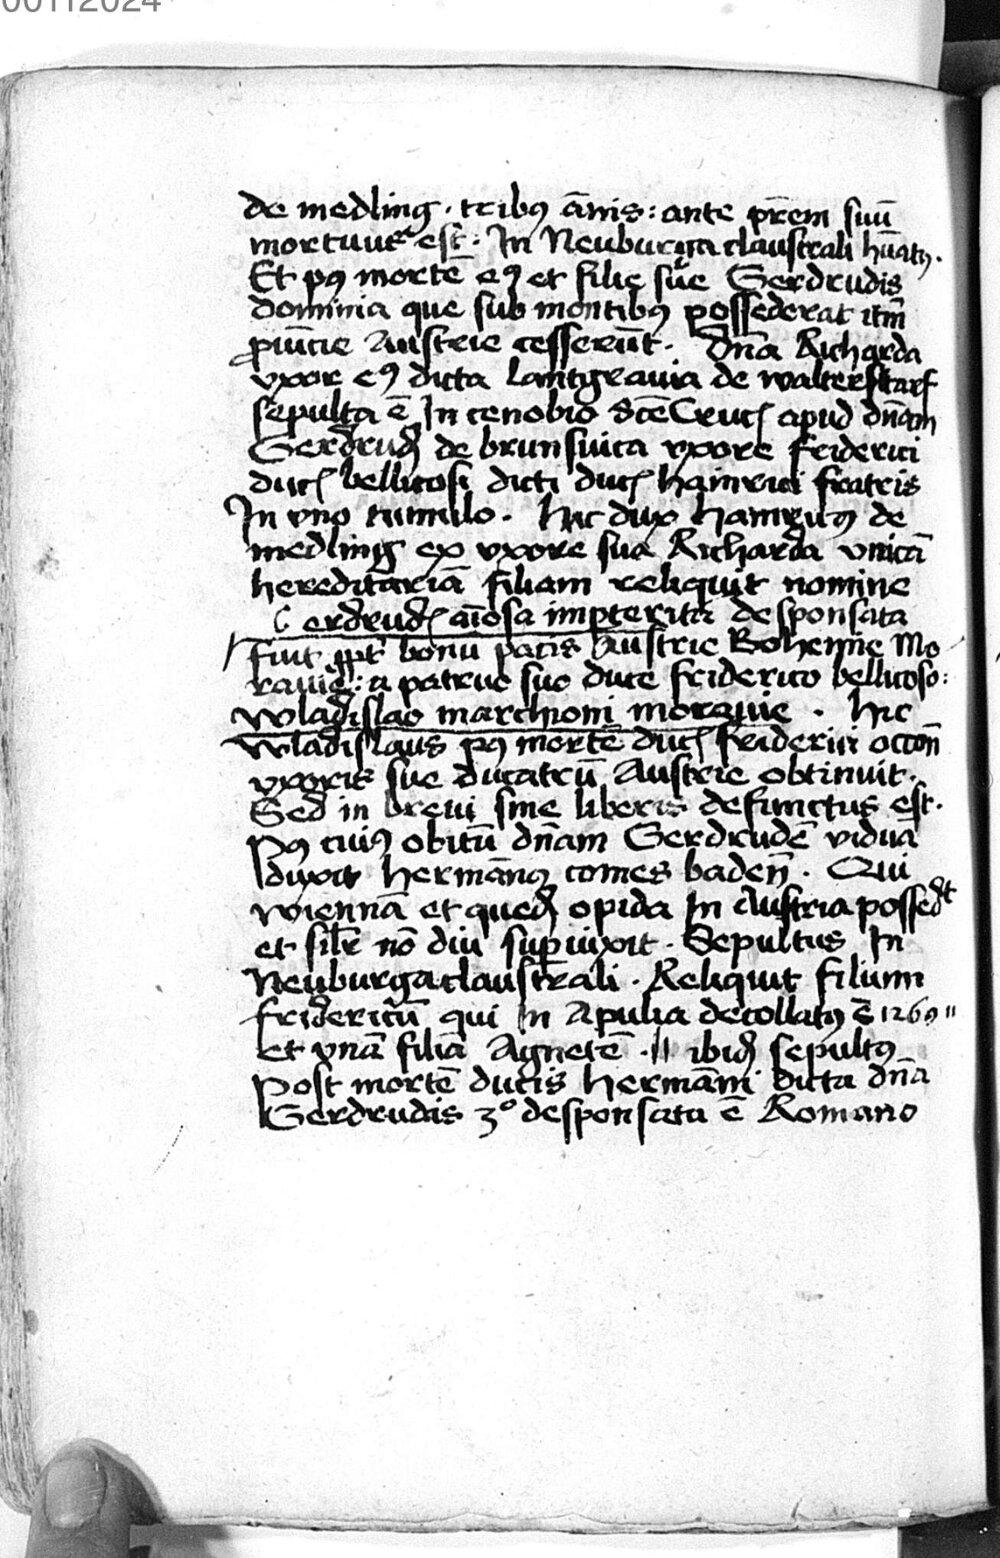 00112024
de medling · tribꝰ ānis : ante prēm suū
mortuus est · In Neuburga claustrali hūatꝰ ·
Et pꝰ mortē eꝰ et filie sue Gerdrudis
dominia que sub montibꝰ possederat itm̄
ꝓuīcie Austrie cesserūt · Dn̄a Richarda
vxor eꝰ dicta lantgrauia de
sepulta ē In cenobio scē Crucꝭ apud dn̄am
Gerdrudꝭ de brunsuica vxore friderici
ducꝭ bellicosi dicti ducꝭ hainrici fratris
In vno tumulo · Hic dux hainricꝰ de
medling ex vxore sua Richarda vnicā
hereditariā filiam reliquit nomine
Gerdrudꝭ desponsata
fuit ꝓpt̄ bonū pacis Austrie Bohemie Mo
rauie : a patruo suo duce friderico bellicoso :
wladislao marchioni morauie · Hic
wladislaus pꝰ mortē ducꝭ friderici occōn̄
vxoris sue ducatū Austrie obtinuit ·
Sed in breui sine liberis defunctus est ·
Pꝰ cuiꝰ obitū dn̄am Gerdrudē viduā
duxit hermānꝰ comes baden̄ · Qui
wiennā et quedꝭ opida In Austria possedit
et silr̄ nō diu supuixit · Sepultus In
Neuburgaclaustrali · Reliquit filium
fridericū qui In Apulia decollatꝰ ē 1269 //
et vnā filiā Agnetē · // ibidꝭ sepultꝰ
Post mortē ducis hermāni dicta dn̄a
Gerdrudis 3º desponsata ē Romano